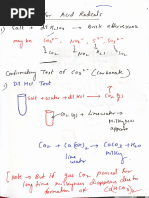 for Acid Radicals
1) Salt + dil H2SO4 → Brisk effervescence
may be CO3²⁻, SO3²⁻, S²⁻, NO2⁻
CO2 SO2 H2S NO2
Confirmatory Test of CO3²⁻ (Carbonate)
1) Dil HCl Test
Salt + water + dil HCl → CO2 (g)
CO2 (g) + Lime water → Milkyness
appear
CO2 + Ca(OH)2 → CaCO3 + H2O
lime water
Milky
[Note → But if gas CO2 passed for
long time milkyness disappear due to
formation of Ca(HCO3)2